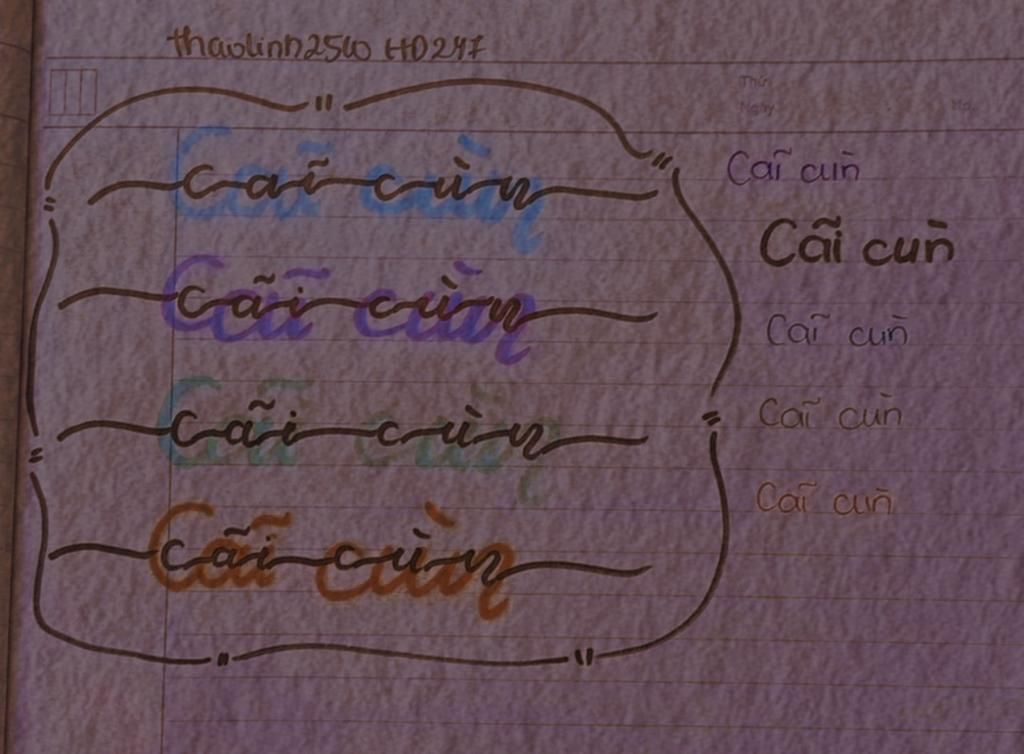 thaolinh25w HD247
Thứ
Ngày
No.
Cãi cùn
Cãi cùn
Cãi cùn
Cãi cùn
Cãi cùn
Cãi cùn
Cãi cùn
Cãi cùn
Cãi cùn